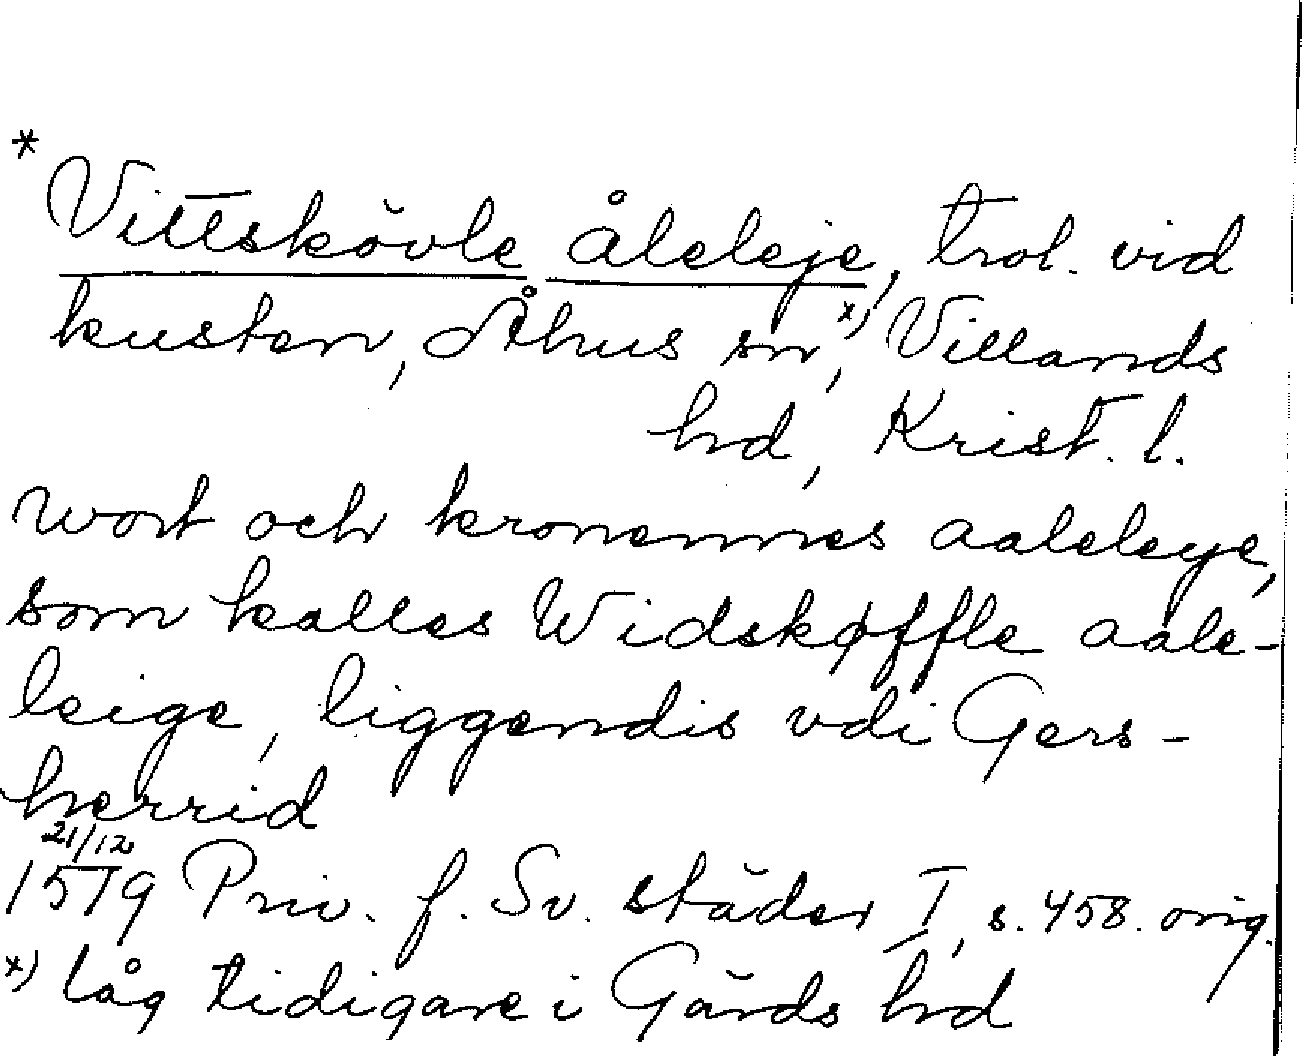 * Vittskövle åleleje, trol. vid
kusten, Åhus sn,*) Villands
hd, Krist. l.
wort och kronennes aaleleye,
som kalles Widskøffle aale-
leige, liggendis vdi Gers-
herrid
21/12
1579 Priv. f. Sv. städer I, s. 458. orig.
*) låg tidigare i Gärds hd